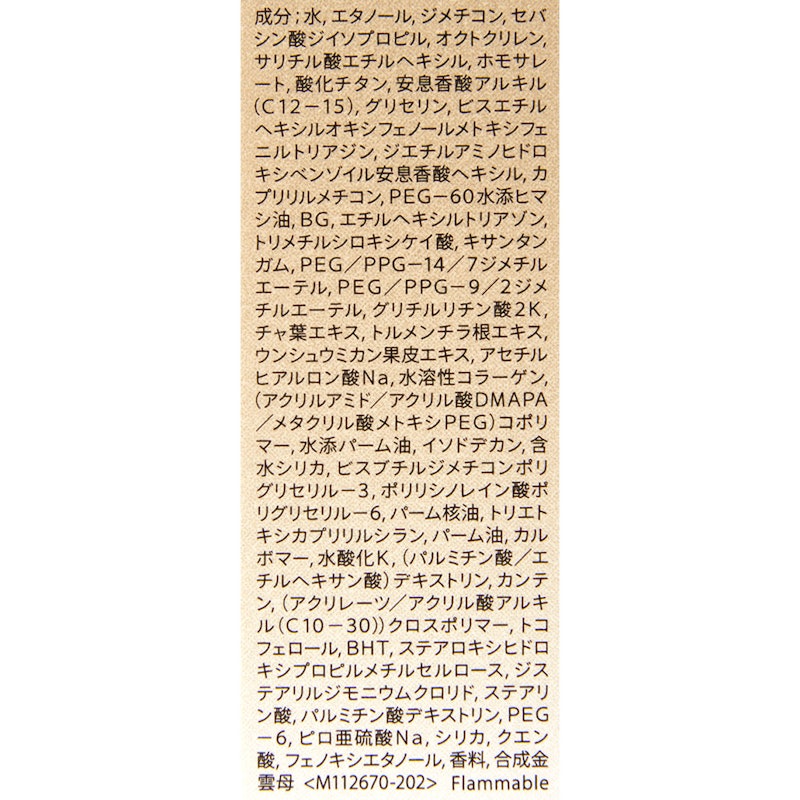 成分；水, エタノール, ジメチコン, セバ
シン酸ジイソプロピル, オクトクリレン,
サリチル酸エチルヘキシル, ホモサレ
ート, 酸化チタン, 安息香酸アルキル
(C12－15), グリセリン, ビスエチル
ヘキシルオキシフェノールメトキシフェ
ニルトリアジン, ジエチルアミノヒドロ
キシベンゾイル安息香酸ヘキシル, カ
プリリルメチコン, PEG－60水添ヒマ
シ油, BG, エチルヘキシルトリアゾン,
トリメチルシロキシケイ酸, キサンタン
ガム, PEG／PPG－14／7ジメチル
エーテル, PEG／PPG－9／2ジメ
チルエーテル, グリチルリチン酸2K,
チャ葉エキス, トルメンチラ根エキス,
ウンシュウミカン果皮エキス, アセチル
ヒアルロン酸Na, 水溶性コラーゲン,
(アクリルアミド／アクリル酸DMAPA
／メタクリル酸メトキシPEG)コポリ
マー, 水添パーム油, イソドデカン, 含
水シリカ, ビスブチルジメチコンポリ
グリセリル－3, ポリリシノレイン酸ポ
リグリセリル－6, パーム核油, トリエト
キシカプリリルシラン, パーム油, カル
ボマー, 水酸化K, (パルミチン酸／エ
チルヘキサン酸)デキストリン, カンテ
ン, (アクリレーツ／アクリル酸アルキ
ル(C10－30))クロスポリマー, トコ
フェロール, BHT, ステアロキシヒドロ
キシプロピルメチルセルロース, ジス
テアリルジモニウムクロリド, ステアリ
ン酸, パルミチン酸デキストリン, PEG
－6, ピロ亜硫酸Na, シリカ, クエン
酸, フェノキシエタノール, 香料, 合成金
雲母 <M112670-202> Flammable